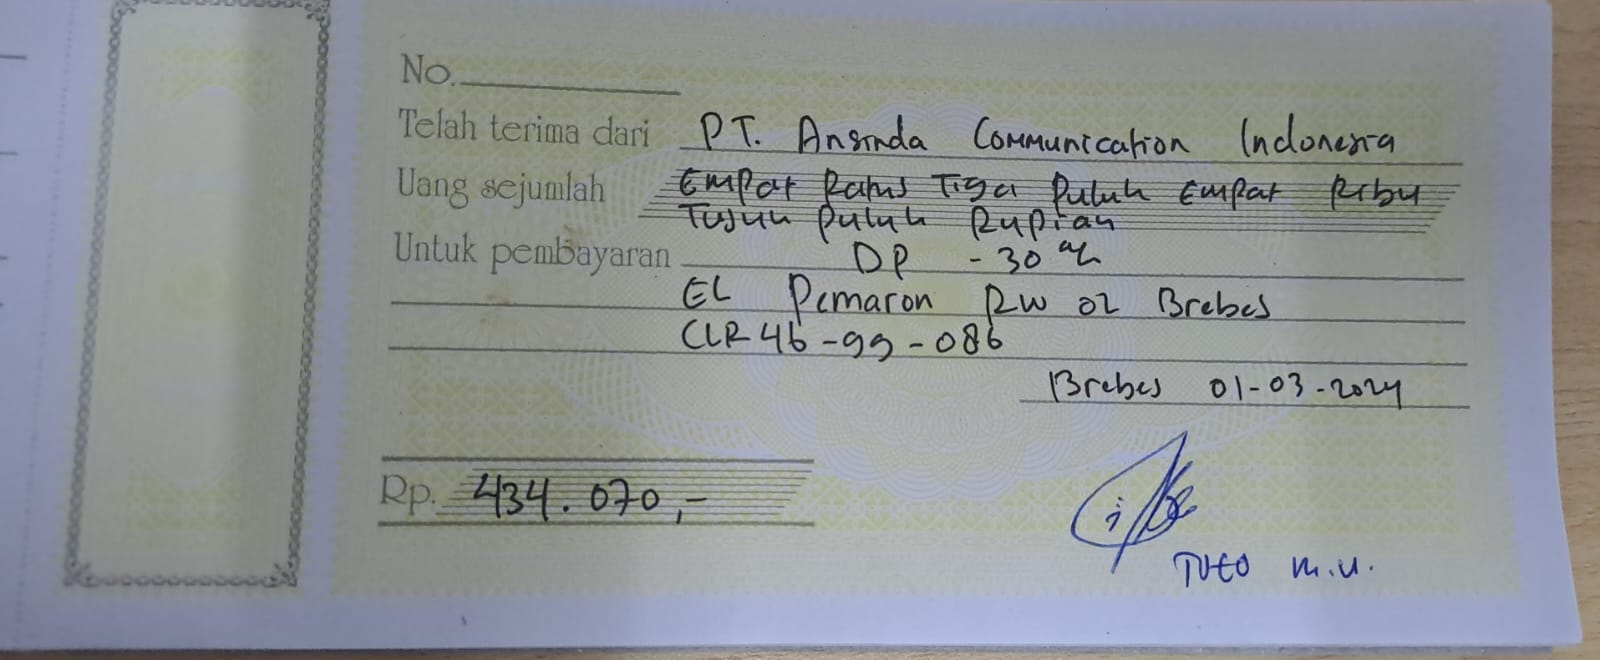 No.
Telah terima dari PT. Ansinda Communication Indonesia
Uang sejumlah Empat Ratus Tiga Puluh Empat Ribu
Tujuh Puluh Rupiah
Untuk pembayaran DP - 30 %
EL Pemaron RW 02 Brebes
CLR 46-99-086
Brebes 01-03-2024
Rp. 434.070,-
M.U.